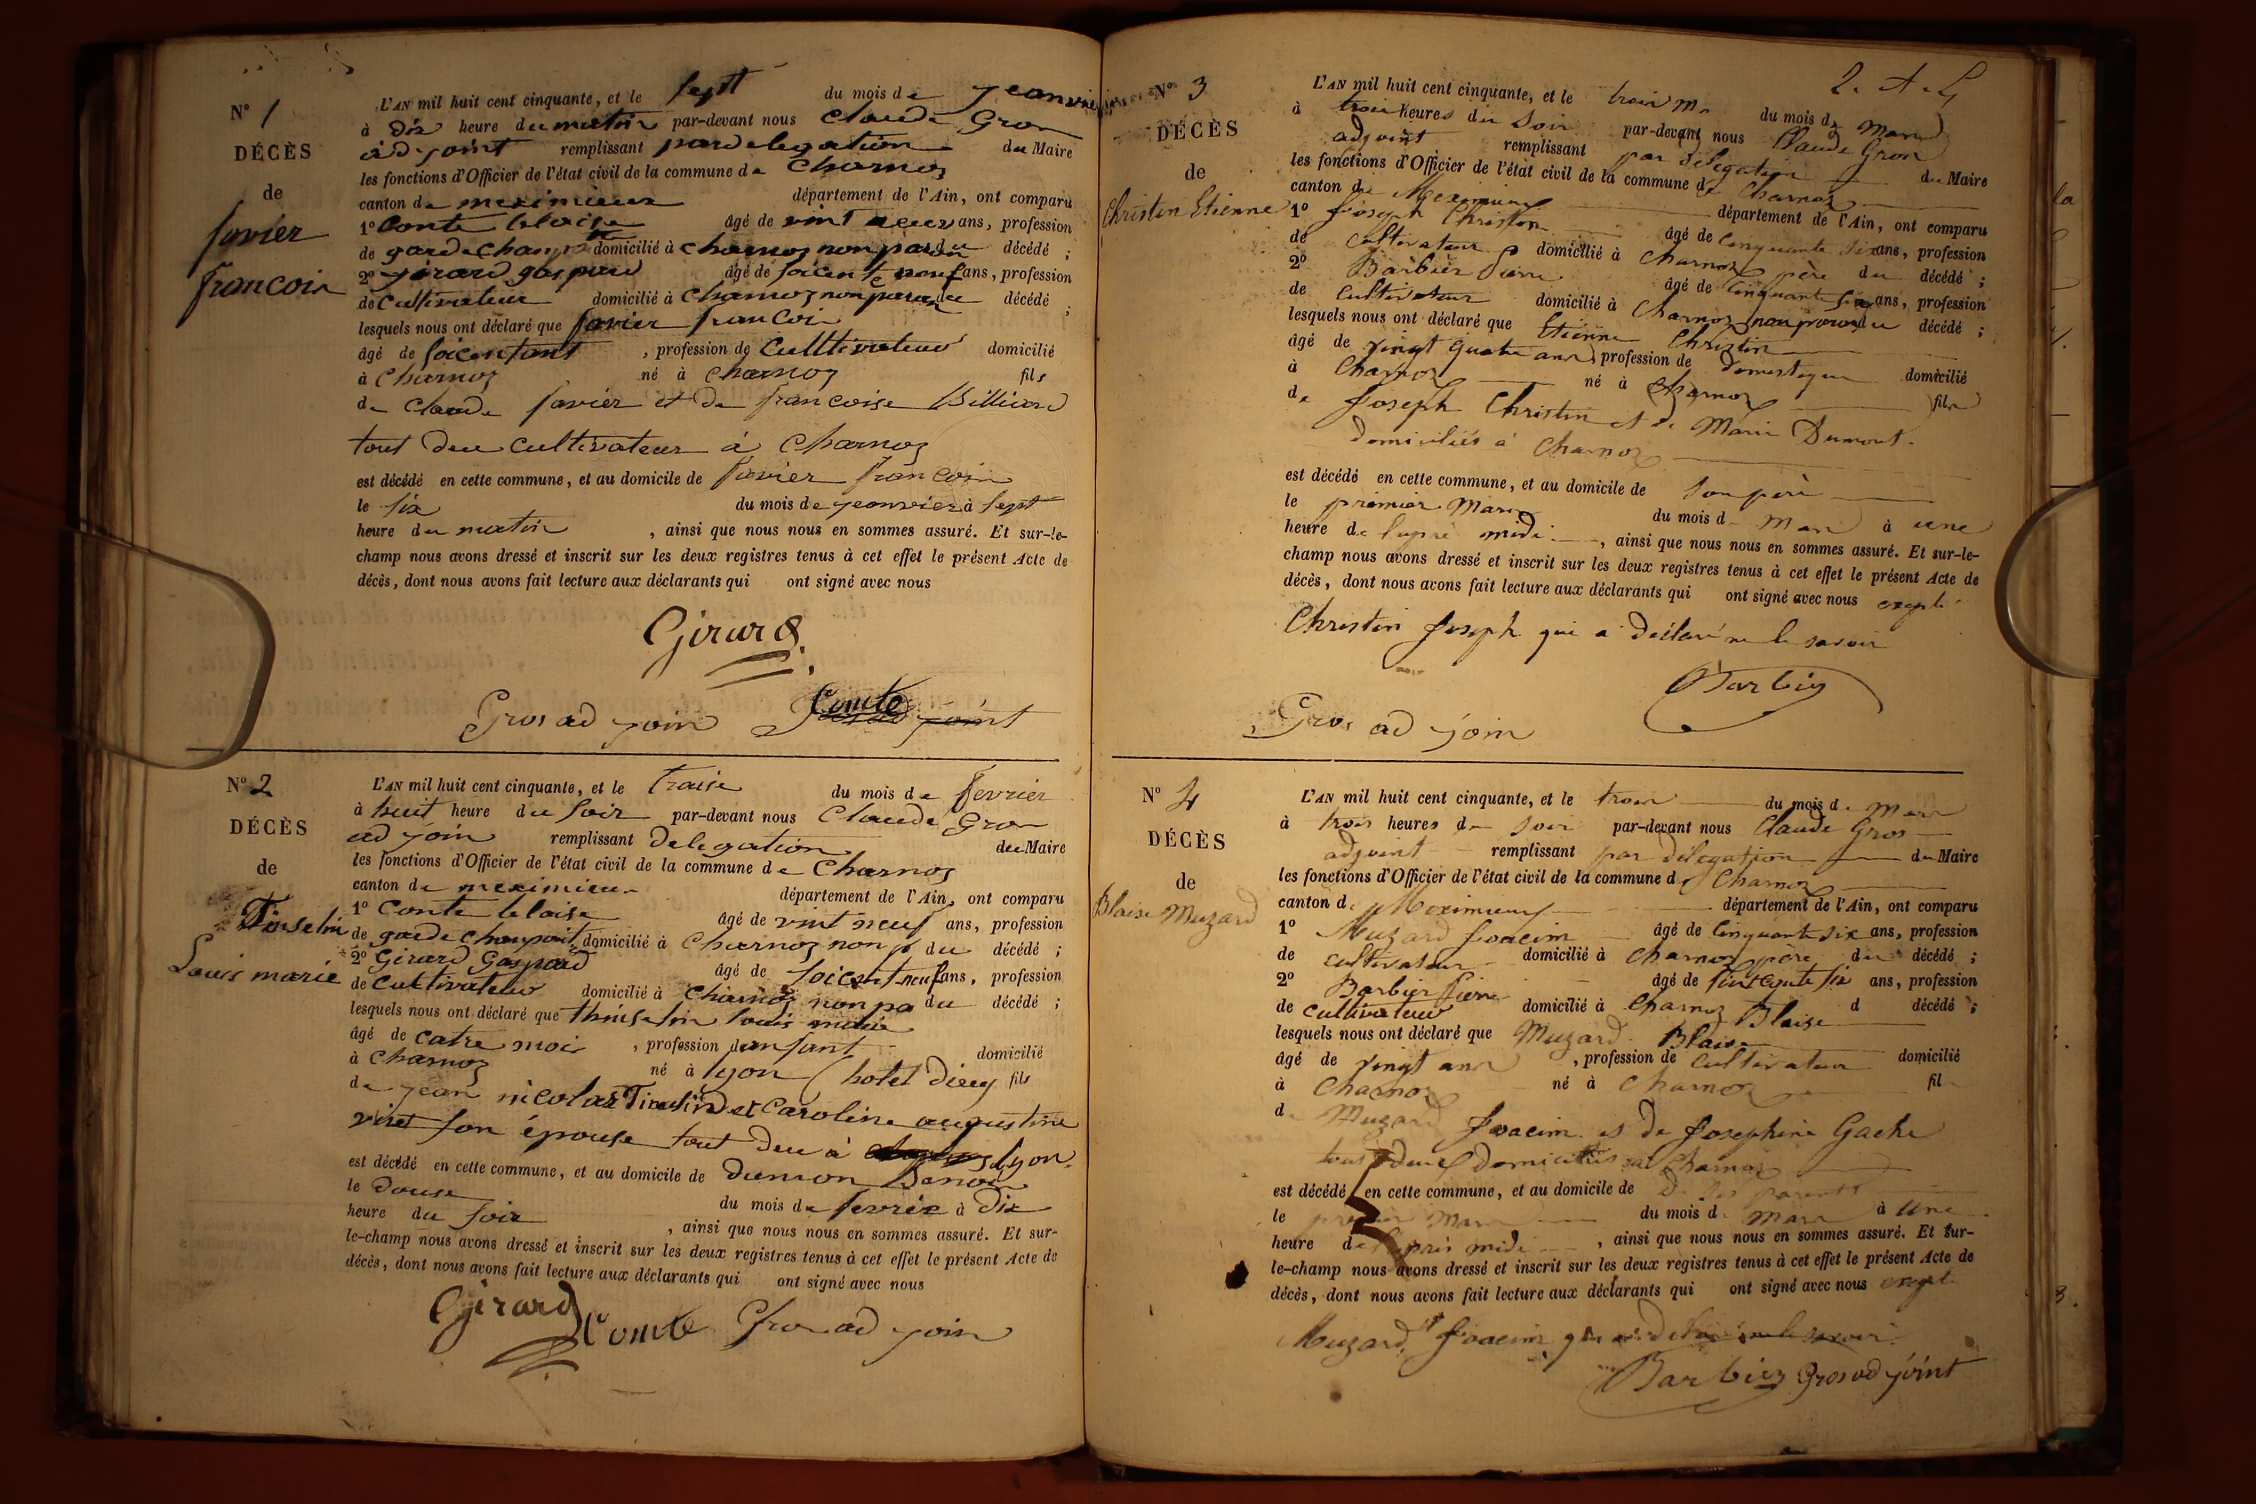 N° 1
DÉCÈS
de
favier
francoir
L'AN mil huit cent cinquante, et le sept du mois de jeanvier
à dix heure du matin par-devant nous Claude Gros
adjoint remplissant par delegation du Maire
les fonctions d'Officier de l'état civil de la commune de Charnoz
canton de meximieux département de l'Ain, ont comparu
1° Conte bloise âgé de vint neuf ans, profession
de garde champ domicilié à charnoz non pard du décédé ;
2° girard gaspard âgé de soicente nouf ans, profession
de Cultivateur domicilié à Charnoz non parend du décédé ;
lesquels nous ont déclaré que favier francoir
âgé de soicentant , profession de Culltivateur domicilié
à Charnoz né à Charnoz fils
de claude favier et de francoise Billiard
tout deu cultivateur à Charnoz
est décédé en cette commune, et au domicile de favier francoir
le six du mois de jeonvier à sept
heure du matin , ainsi que nous nous en sommes assuré. Et sur-le-
champ nous avons dressé et inscrit sur les deux registres tenus à cet effet le présent Acte de
décès, dont nous avons fait lecture aux déclarants qui ont signé avec nous
Girard
Gros ad join Comte
N° 2
DÉCÈS
de
Tinselin
Louis marie
L'AN mil huit cent cinquante, et le traise du mois de fevrier
à huit heure du soir par-devant nous Claude Gros
ad join remplissant delegation du Maire
les fonctions d'Officier de l'état civil de la commune de Charnoz
canton de meximieu département de l'Ain, ont comparu
1° Conte bloise âgé de vint neuf ans, profession
de garde domicilié à Charnoz non p du décédé ;
2° Girard Gaspard âgé de soicent neuf ans, profession
de Cultivateur domicilié à Charnoz non pa du décédé ;
lesquels nous ont déclaré que louis marie
âgé de catre mois , profession d anfant domicilié
à Charnoz né à lyon (hotel dieu fils
de jean nicolas et Caroline augustine
viret son épouse tout deu à lyon.
est décédé en cette commune, et au domicile de Dumon Benoi
le douse du mois de fevrie à dix
heure du soir , ainsi que nous nous en sommes assuré. Et sur-
le-champ nous avons dressé et inscrit sur les deux registres tenus à cet effet le présent Acte de
décès, dont nous avons fait lecture aux déclarants qui ont signé avec nous
Girard Comte Gros ad join
N° 3
DÉCÈS
de
Christin Etienne
L'AN mil huit cent cinquante, et le trois du mois de Mars
à trois heures du soir par-devant nous Claude Gros
adjoint remplissant par délégation du Maire
les fonctions d'Officier de l'état civil de la commune de Charnoz
canton de Meximieux département de l'Ain, ont comparu
1° Joseph Christin âgé de Cinquante six ans, profession
de Cultivateur domicilié à Charnoz père du décédé ;
2° Barbier Pierre âgé de Cinquante six ans, profession
de Cultivateur domicilié à Charnoz non parent du décédé ;
lesquels nous ont déclaré que Etienne Christin
âgé de vingt quatre ans, profession de domestique domicilié
à Charnoz né à Charnoz fils
de Joseph Christin et de Marie Dumont.
domiciliés à Charnoz
est décédé en cette commune, et au domicile de son père
le premier Mars du mois d Mars à une
heure de l'après midi , ainsi que nous nous en sommes assuré. Et sur-le-
champ nous avons dressé et inscrit sur les deux registres tenus à cet effet le présent Acte de
décès, dont nous avons fait lecture aux déclarants qui ont signé avec nous excepté
Christin Joseph qui a déclaré ne le savoir
Barbier
Gros ad join
N° 4
DÉCÈS
de
Blaise Muzard
L'AN mil huit cent cinquante, et le trois du mois de Mars
à trois heures du soir par-devant nous Claude Gros
adjoint remplissant par délégation du Maire
les fonctions d'Officier de l'état civil de la commune de Charnoz
canton de Meximieux département de l'Ain, ont comparu
1° Muzard Joacim âgé de Cinquante six ans, profession
de cultivateur domicilié à Charnoz père du décédé ;
2° Barbier Pierre âgé de Cinquante six ans, profession
de Cultivateur domicilié à Charnoz d décédé ;
lesquels nous ont déclaré que Muzard Blaise Blaise
âgé de vingt ans , profession de Cultivateur domicilié
à Charnoz né à Charnoz fil
de Muzard Joacim et de Josephine Gache
tous deux domiciliés à Charnoz
est décédé en cette commune, et au domicile de de ses parents
le premier Mars du mois d Mars à Une
heure de l'après midi , ainsi que nous nous en sommes assuré. Et sur-
le-champ nous avons dressé et inscrit sur les deux registres tenus à cet effet le présent Acte de
décès, dont nous avons fait lecture aux déclarants qui ont signé avec nous excepté
Muzard Joacim qui a déclaré ne le savoir
Barbier Gros ad joint